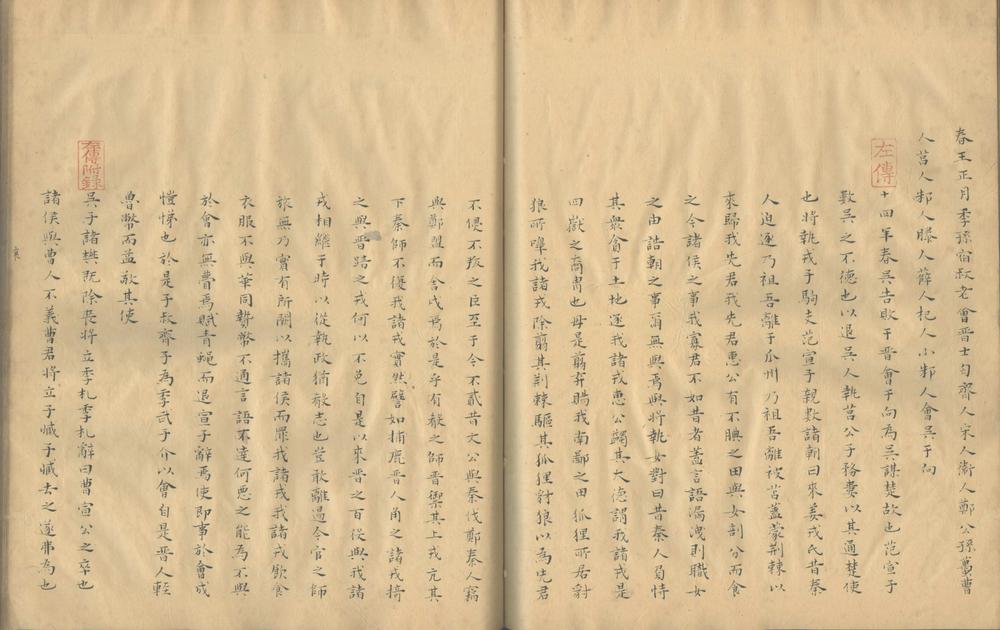 春王正月季孫宿叔老會晉士匄齊人宋人衛人鄭公孫蠆曹
人莒人邾人滕人薛人杞人小邾人會吳于向
左傳
十四年春吳告敗于晉會于向為吳謀楚故也范宣子
數吳之不德也以退吳人執莒公子務婁以其通楚使
也將執戎子駒支范宣子親數諸朝曰來姜戎氏昔秦
人迫逐乃祖吾離于瓜州乃祖吾離被苫蓋蒙荊棘以
來歸我先君我先君惠公有不腆之田與女剖分而食
之今諸侯之事我寡君不如昔者蓋言語漏洩則職女
之由詰朝之事爾無與焉與將執女對曰昔秦人負恃
其衆貪于土地逐我諸戎惠公蠲其大德謂我諸戎是
四嶽之裔冑也毋是翦棄賜我南鄙之田狐狸所居豺
狼所嘷我諸戎除翦其荊棘驅其狐狸豺狼以為先君
不侵不叛之臣至于今不貳昔文公與秦伐鄭秦人竊
與鄭盟而舍戍焉於是乎有殽之師晉禦其上戎亢其
下秦師不復我諸戎實然譬如捕鹿晉人角之諸戎掎
之與晉踣之戎何以不免自是以來晉之百役與我諸
戎相繼于時以從執政猶殽志也豈敢離逷今官之師
旅無乃實有所闕以攜諸侯而罪我諸戎我諸戎飲食
衣服不與華同贄幣不通言語不達何惡之能為不與
於會亦無瞢焉賦青蠅而退宣子辭焉使即事於會成
愷悌也於是子叔齊子為季武子介以會自是晉人輕
魯幣而益敬其使
左傳附錄
吳子諸樊既除喪將立季札季札辭曰曹宣公之卒也
諸侯與曹人不義曹君將立子臧子臧去之遂弗為也